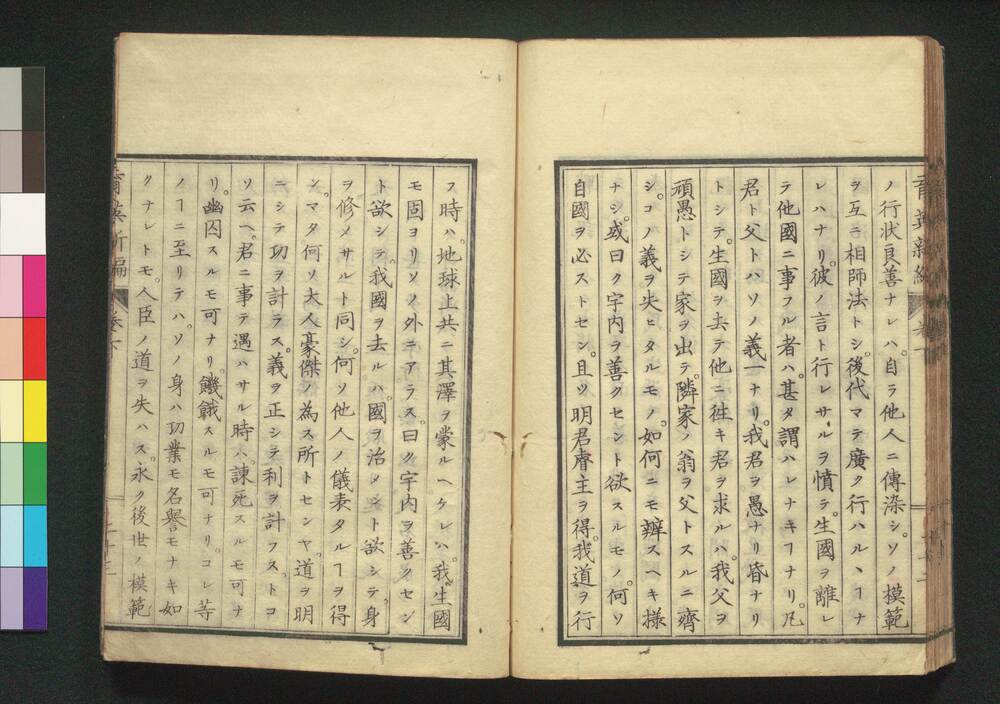 ノ行狀良善ナレハ。自ラ他人ニ傳染シ。ソノ模範
ヲ互ニ相師法トシ。後代マテ廣ク行ハルヽヿナ
レハナリ。彼ノ言ト行レサルヲ憤テ。生國ヲ離レ
テ他國ニ事フル者ハ。甚タ謂ハレナキヿナリ。凡
君ト父トハソノ義一ナリ。我君ヲ愚ナリ昏ナリ
トシテ。生國ヲ去テ他ニ徃キ君ヲ求ルハ。我父ヲ
頑愚トシテ家ヲ出テ。隣家ノ翁ヲ父トスルニ齊
シ。コノ義ヲ失ヒタルモノ。如何ニモ辨スヘキ様
ナシ。或曰ク宇内ヲ善クセント欲スルモノ。何ソ
自國ヲ必ストセン。且ツ明君睿主ヲ得。我道ヲ行
フ時ハ。地球上共ニ其澤ヲ蒙ルヘケレハ。我生國
モ固ヨリソノ外ニアラス。曰ク宇内ヲ善クセン
ト欲シテ。我國ヲ去ルハ。國ヲ治メント欲シテ。身
ヲ修メサルト同シ。何ソ他人ノ儀表タルヿヲ得
ン。マタ何ソ大人豪傑ノ為ス所トセンヤ。道ヲ明
ニシテ功ヲ計ラス。義ヲ正シテ利ヲ計フストコ
ソ云ヘ。君ニ事テ遇ハサル時ハ。諌死スルモ可ナ
リ。幽囚スルモ可ナリ。饑餓スルモ可ナリ。コレ等
ノヿニ至リテハ。ソノ身ハ功業モ名譽モナキ如
クナレトモ。人臣ノ道ヲ失ハス。永ク後世ノ模範